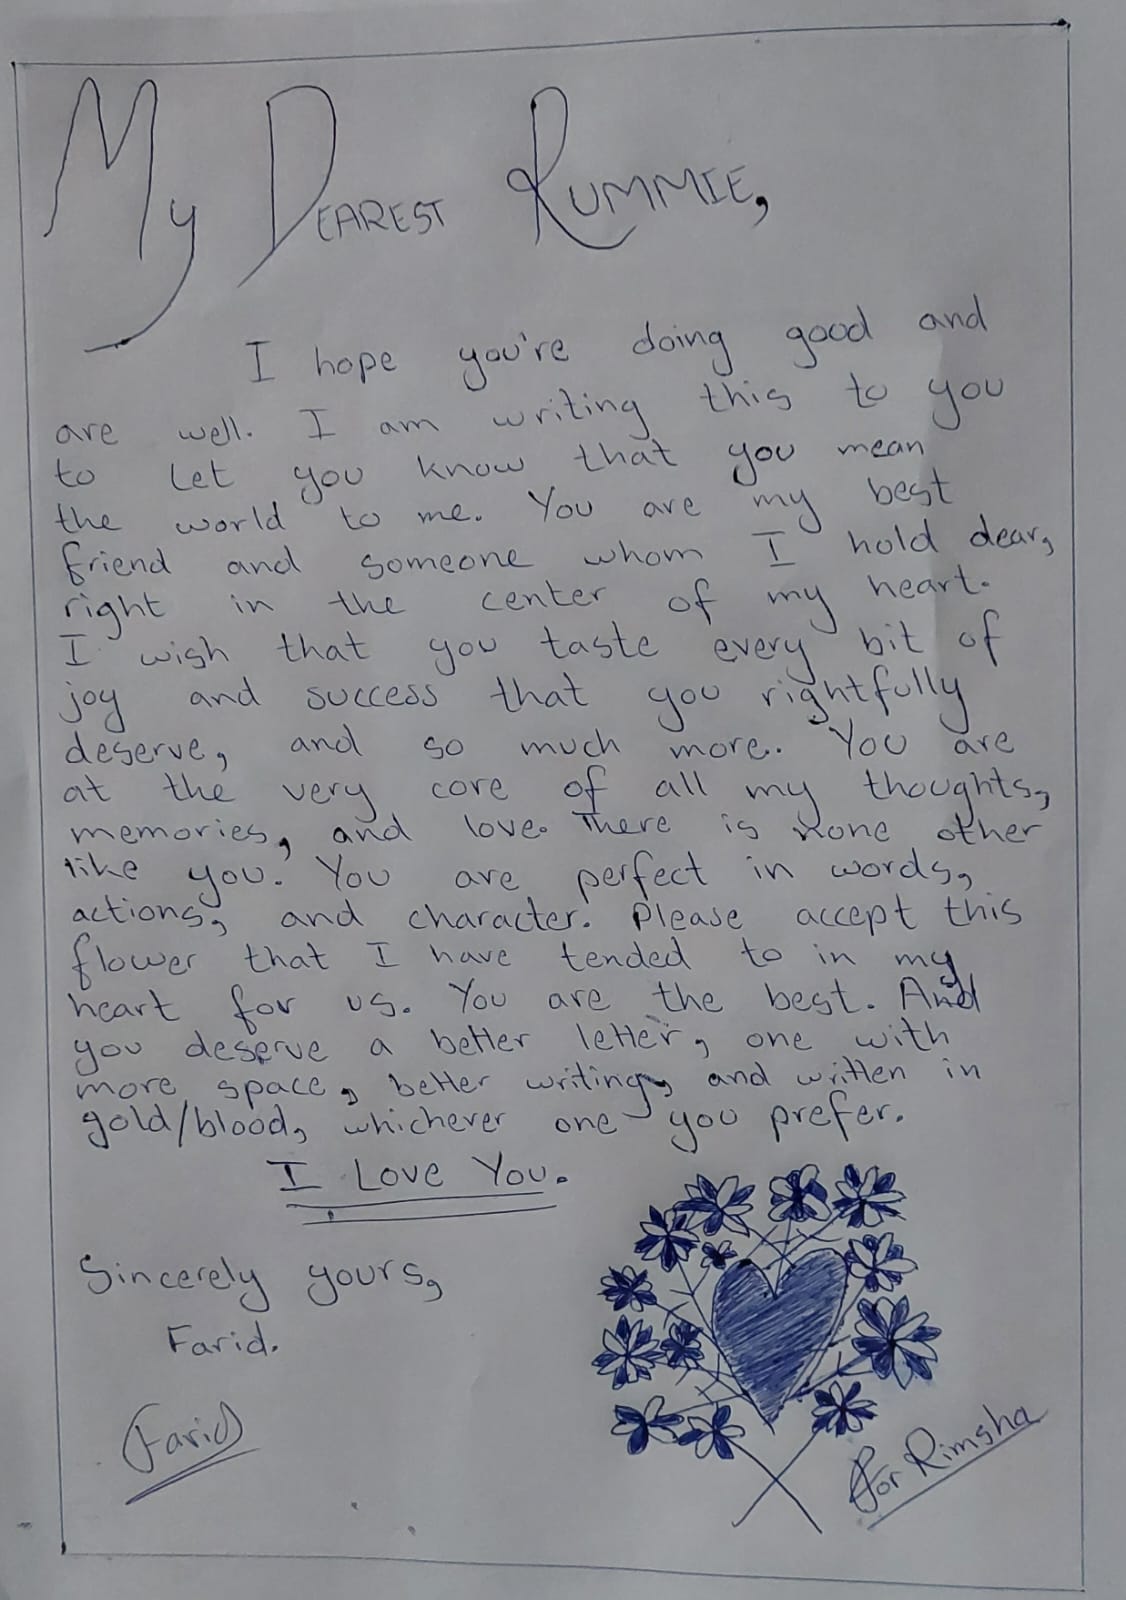 My DEAREST RUMMIE,
I hope you're doing good and
are well. I am writing this to you
to let you know that you mean
the world to me. You are my best
friend and someone whom I hold dear,
right in the center of my heart.
I wish that you taste every bit of
joy and success that you rightfully
deserve, and so much more. You are
at the very core of all my thoughts,
memories, and love. There is none other
like you. You are perfect in words,
actions, and character. Please accept this
flower that I have tended to in my
heart for us. You are the best. And
you deserve a better letter, one with
more space, better writing, and written in
gold/blood, whichever one you prefer.
I Love You.
Sincerely yours,
Farid.
Farid
For Rimsha